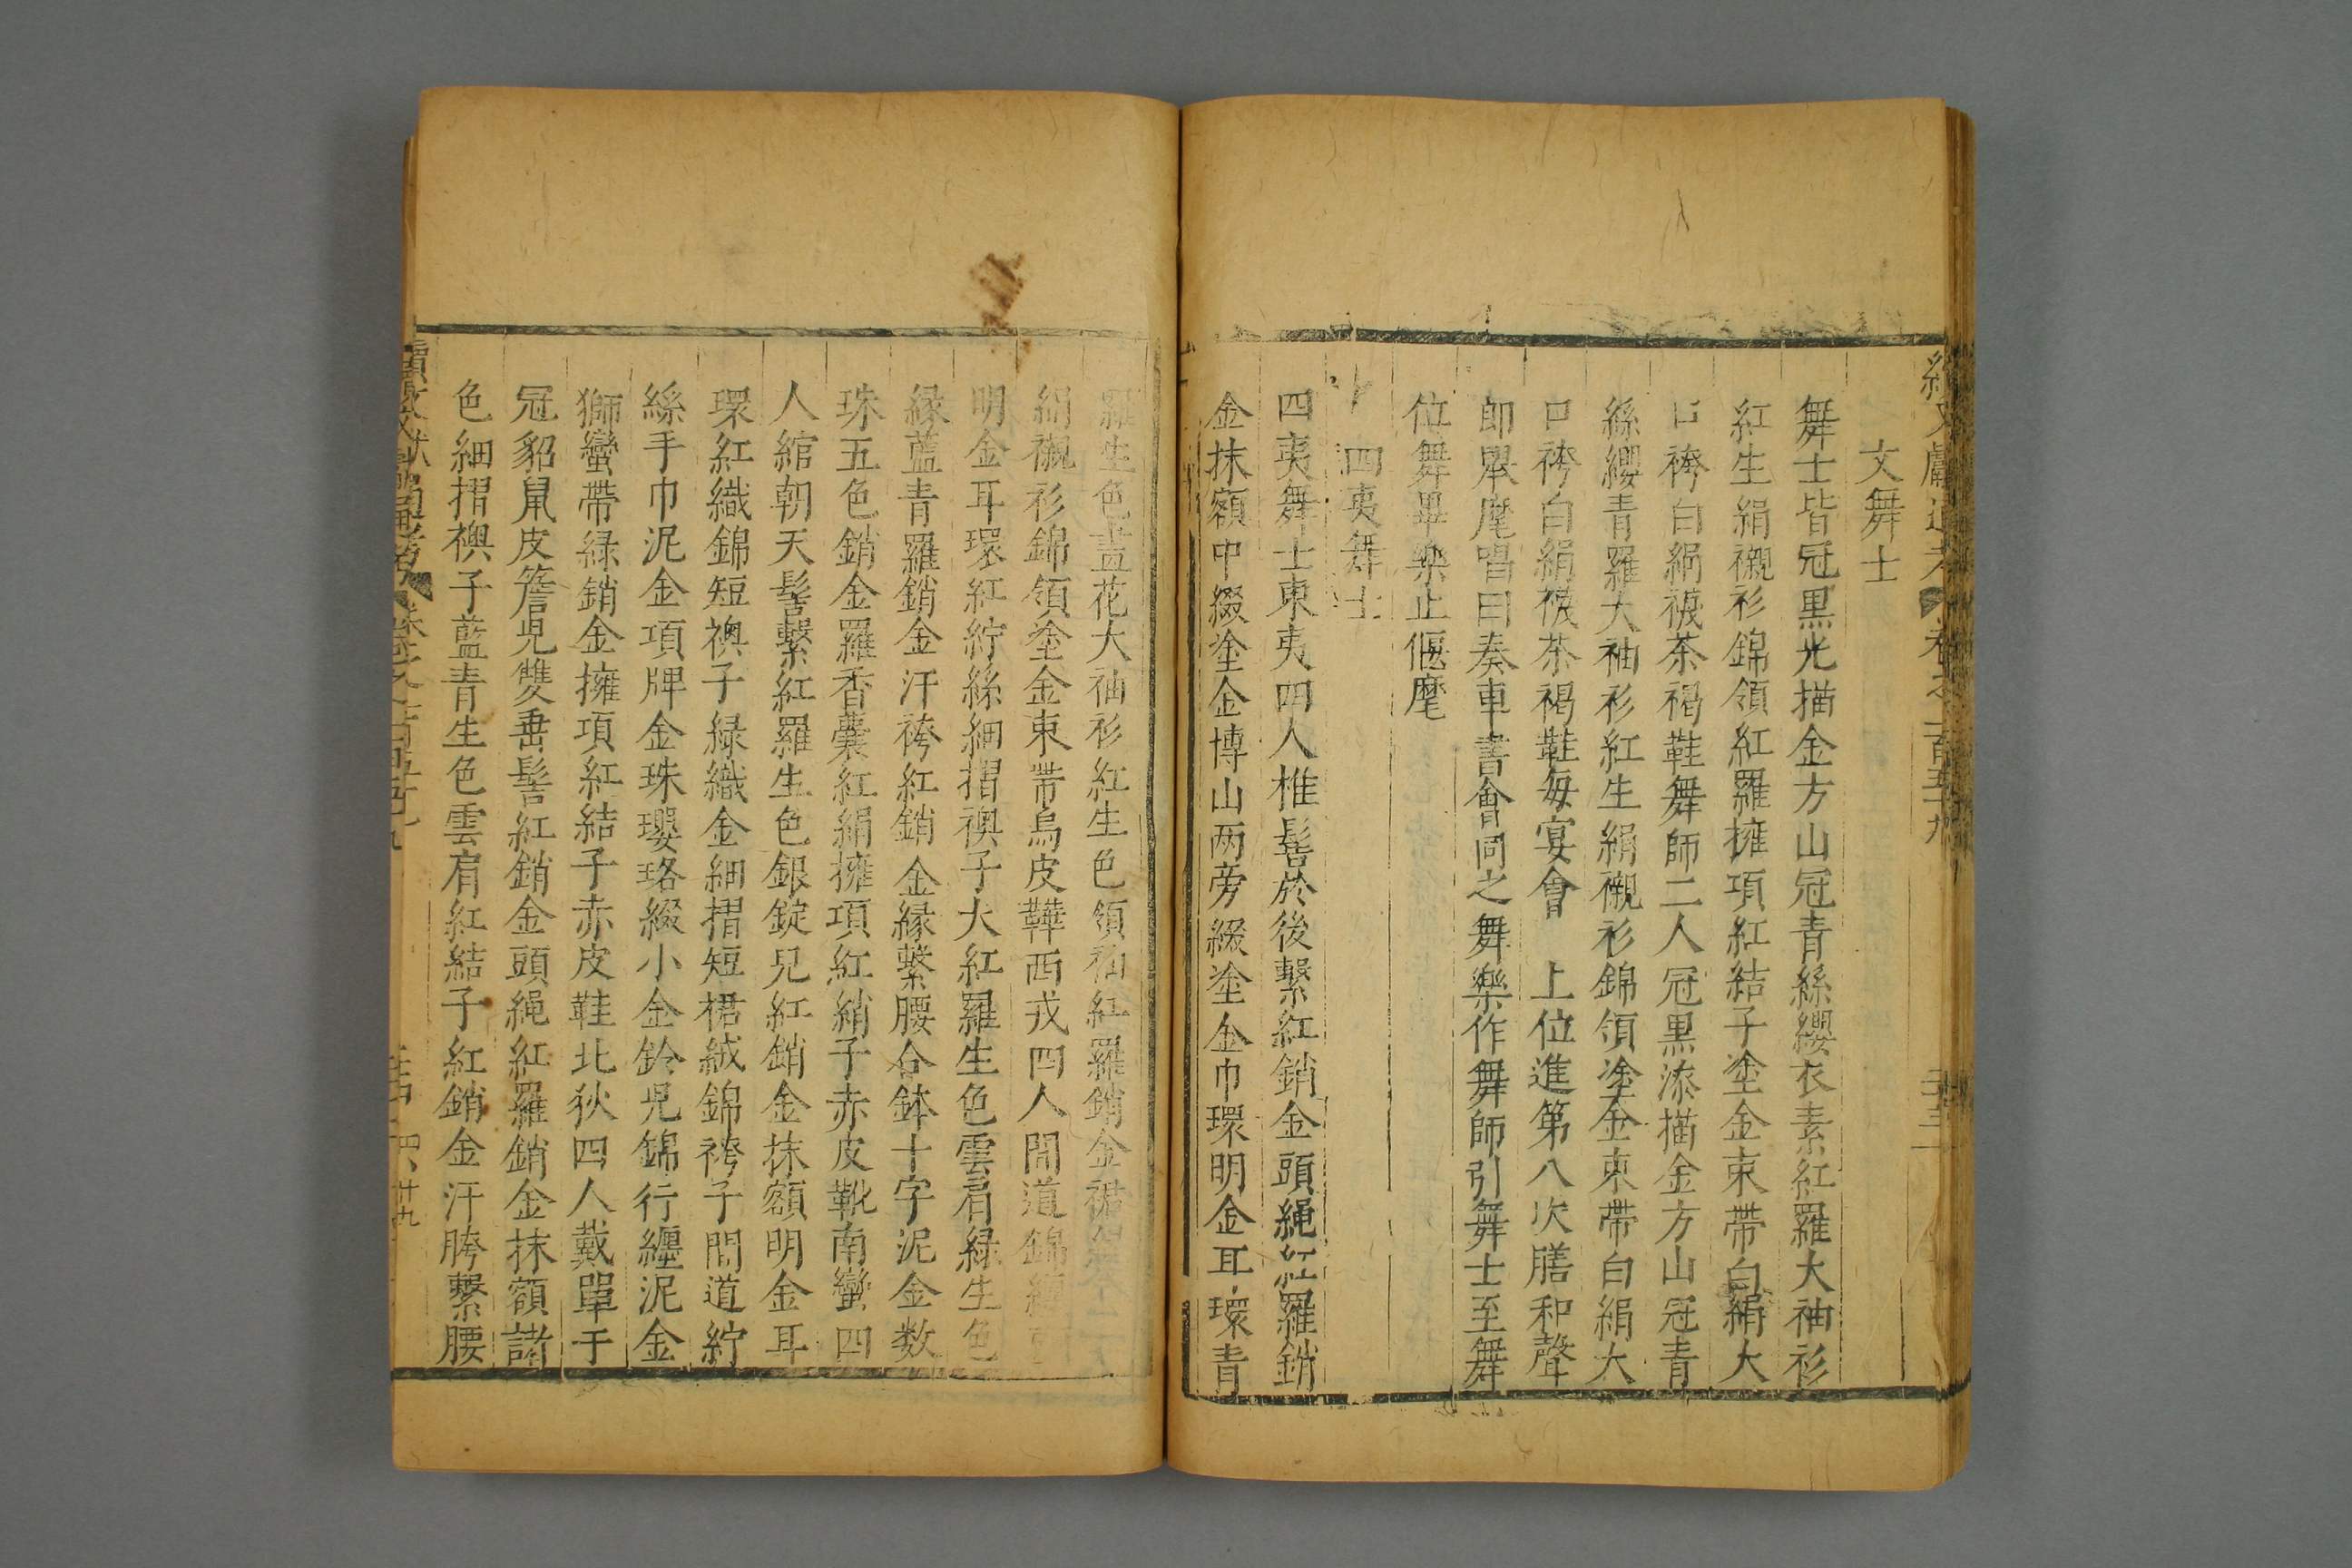 文舞士
舞士皆冠黑光描金方山冠青絲纓衣素紅羅大袖衫
紅生絹襯衫錦領紅羅擁項紅結子塗金束帶白絹大
口袴白絹襪茶褐鞋舞師二人冠黒漆描金方山冠青
絲纓青羅大袖衫紅生絹襯衫錦領塗金束帶白絹大
口袴白絹襪茶褐鞋每宴會 上位進第八次膳和聲
郎舉麾唱曰奏車書會同之舞樂作舞師引舞士至舞
位舞畢樂止偃麾
四夷舞士
四夷舞士東夷四人椎髻於後繫紅銷金頭繩紅羅銷
金抹額中綴塗金博山两旁綴塗金巾環明金耳環青
羅生色畫花大袖衫紅生色領袖紅羅銷金裙
絹襯衫錦領塗金束帶烏皮鞾西戎四人間道錦纏
明金耳環紅紵絲細摺襖子大紅羅生色雲肩綠生色
緣藍青羅銷金汗袴紅銷金緣繫腰合鉢十字泥金数
珠五色銷金羅香囊紅絹擁項紅綃子赤皮靴南蠻四
人綰朝天髻繫紅羅生色銀錠兒紅銷金抹額明金耳
環紅織錦短襖子綠織金細摺短裙絨錦袴子間道紵
絲手巾泥金項牌金珠瓔珞綴小金鈴兒錦行纏泥金
獅蠻帶綠銷金擁項紅結子赤皮鞋北狄四人戴單手
冠貂鼠皮簷兒雙垂髻紅銷金頭繩紅羅銷金抹額諸
色細摺襖子藍青生色雲肩紅結子紅銷金汗胯繫腰